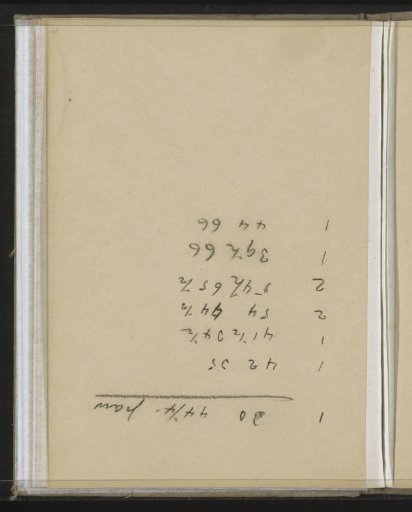 1 30 44¼
1 42 35
1 41½ 34½
2 54 44½
2 54½ 65½
1 39½ 66
1 44 66